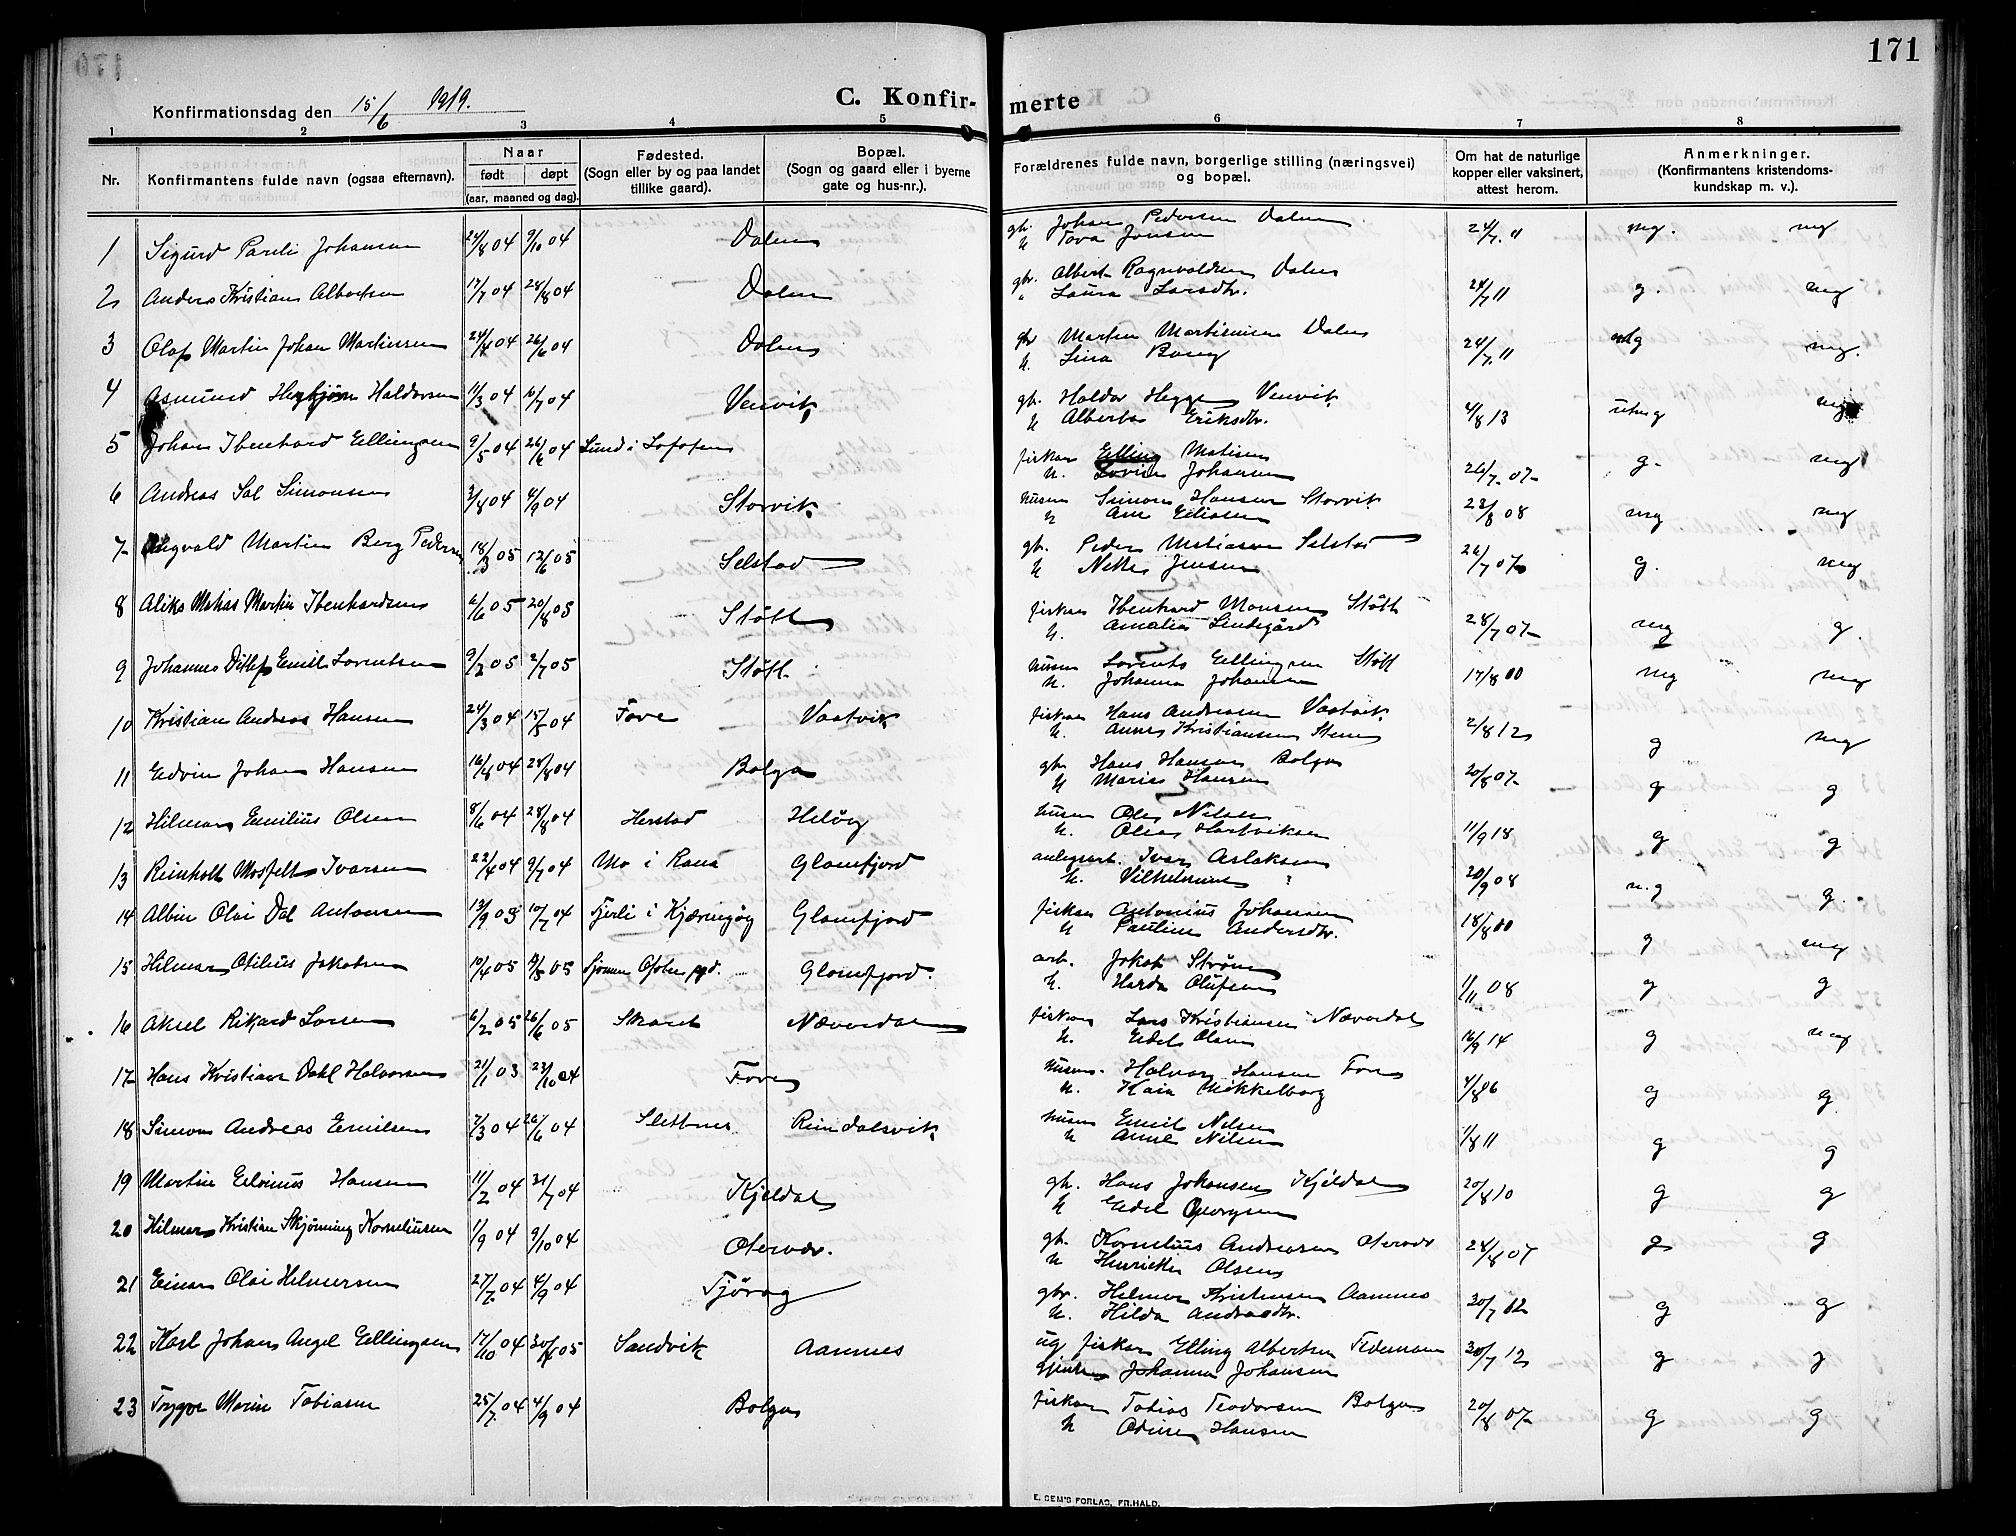 171
Konfirmationsdag den 15/6 1919.
C. Konfir-
merte
1 2 3 4 5 6 7 8
Nr.
Konfirmantens fulde navn (ogsaa efternavn).
Naar
født døpt
(aar, maaned og dag).
Fødested.
(Sogn eller by og paa landet
tillike gaard).
Bopæl.
(Sogn og gaard eller i byerne
gate og hus-nr.).
Forældrenes fulde navn, borgerlige stilling (næringsvei)
og bopæl.
Om hat de naturlige
kopper eller vaksinert,
attest herom.
Anmerkninger.
(Konfirmantens kristendoms-
kundskap m. v.).
1 Sigurd Pareli Johansen 24/8 04 9/10 04 Dalen gbr. Johan Pedersen Dalen 24/7 11 mg. mg
h. Tova Jensen
2 Anders Kristian Albertsen 17/7 04 28/8 04 Dalen gbr. Albert Ragnvaldsen Dalen 24/7 11 g. mg
" Laura Larsdtr.
3 Olaf Martin Johan Martinsen 24/4 04 26/6 04 Dalen gbr Morten Martinsen Dalen 24/7 11 mg mg.
h. Lina Bang
4 Asmund Herbjørn Haldorsen 11/3 04 10/7 04 Venvik gbr. Haldor Heggen Venvik 4/8 13 utmg mg
h Alberta Eriksdtr.
5 Johan Ibenhard Ellingsen 9/5 04 26/6 04 Sund i Lofoten fisker Elling Matisen 26/7 07 g. mg
h. Lovise Johansen
6 Andreas Sol Simonsen 3/8 04 4/9 04 Storvik husm Simon Hansen Storvik 23/8 08 mg mg
h Ane Eliasen
7 Ingvald Martin Berg Pedersen 18/3 05 12/6 05 Selstad gbr. Peder Matiasen Selstad 26/7 07 g. mg
h Nekka Jensen
8 Aliks Matias Martin Ibenhardsen 6/6 05 20/8 05 Støtt fisker Ibenhard Monsen Støtt 28/7 07 mg g.
h. Amalia Lindegård
9 Johannes Ditlef Emil Lorentsen 9/2 05 2/7 05 Støtt husm Lorents Ellingsen Støtt 17/8 00 mg mg
h. Johanna Johansen
10 Kristian Andreas Hansen 24/3 04 15/5 04 Fore Vaatvik fisker Hans Andreasen Vaatvik 2/8 12 g mg
h. Anna Kristiansen Stene
11 Edvin Johan Hansen 16/4 04 28/8 04 Bolga gbr Hans Hansen Bolga 20/8 07 g g
h Marie Hansen
12 Hilmar Emilius Olsen 8/6 04 28/8 04 Herstad Heløy husm Ole Nilsen 11/9 18 g g
h. Olea Hartviksen
13 Reinholt Mosfelt Ivarsen 22/4 04 9/7 04 Mo i Rana Glomfjord anlegsarb. Ivar Aslaksen 20/9 08 m.g g.
h. Vilhelmine "
14 Albin Olai Dal Antonsen 13/9 03 10/7 04 Tjerli i Kjæringøy Glomfjord fisker Antonius Johansen 18/8 00 g mg
h Pauline Andersdtr.
15 Hilmar Otilius Jakobsen 10/4 05 05 Glomfjord. arb. Jakob Strøm 1/11 08 g g
h. Harda Olufsen
16 Aksel Rikard Larsen 6/2 05 26/6 05 Skaret Næverdal fisker Lars Kristiansen Næverdal 16/9 14 g mg
h. Edel Olsen
17 Hans Kristian Dahl Halvorsen 21/1 03 23/10 04 Fore husm. Halvor Hansen Fore 4/8 86 g g
h. Kaia Mikkelborg
18 Simon Andreas Emilsen 7/3 04 26/6 04 Slettnes Reindalsvik husm Emil Nilsen 1/8 11 g g
h Anne Nilsen
19 Martin Edvinus Hansen 11/2 04 31/7 04 Kjeldal gbr. Hans Johansen Kjeldal 20/8 10 g g
h Edel Georgsen
20 Hilmar Kristian Skjønning Korneliussen 11/9 04 9/10 04 Oterver. gbr. Kornelius Andreasen Oterver 24/8 07 g g
h Henrikke Olsen
21 Einar Olai Helmersen 27/2 04 4/9 04 Tjørag gbr. Helmer Kristensen Aamnes 30/7 12 g g
h. Hilda Andreasdtr.
22 Karl Johan Angel Ellingsen 17/10 04 30/4 05 Sandvik Aamnes ug fisker Elling Albertsen Tedemann 30/7 12 g g
Johanna Johansen
23 Trygve Marin Tobiasen 25/7 04 4/9 04 Bolga fisker Tobias Teodorsen Bolga 20/8 07 g g
h Odine Hansen
E. SEM'S FORLAG, FR.HALD.